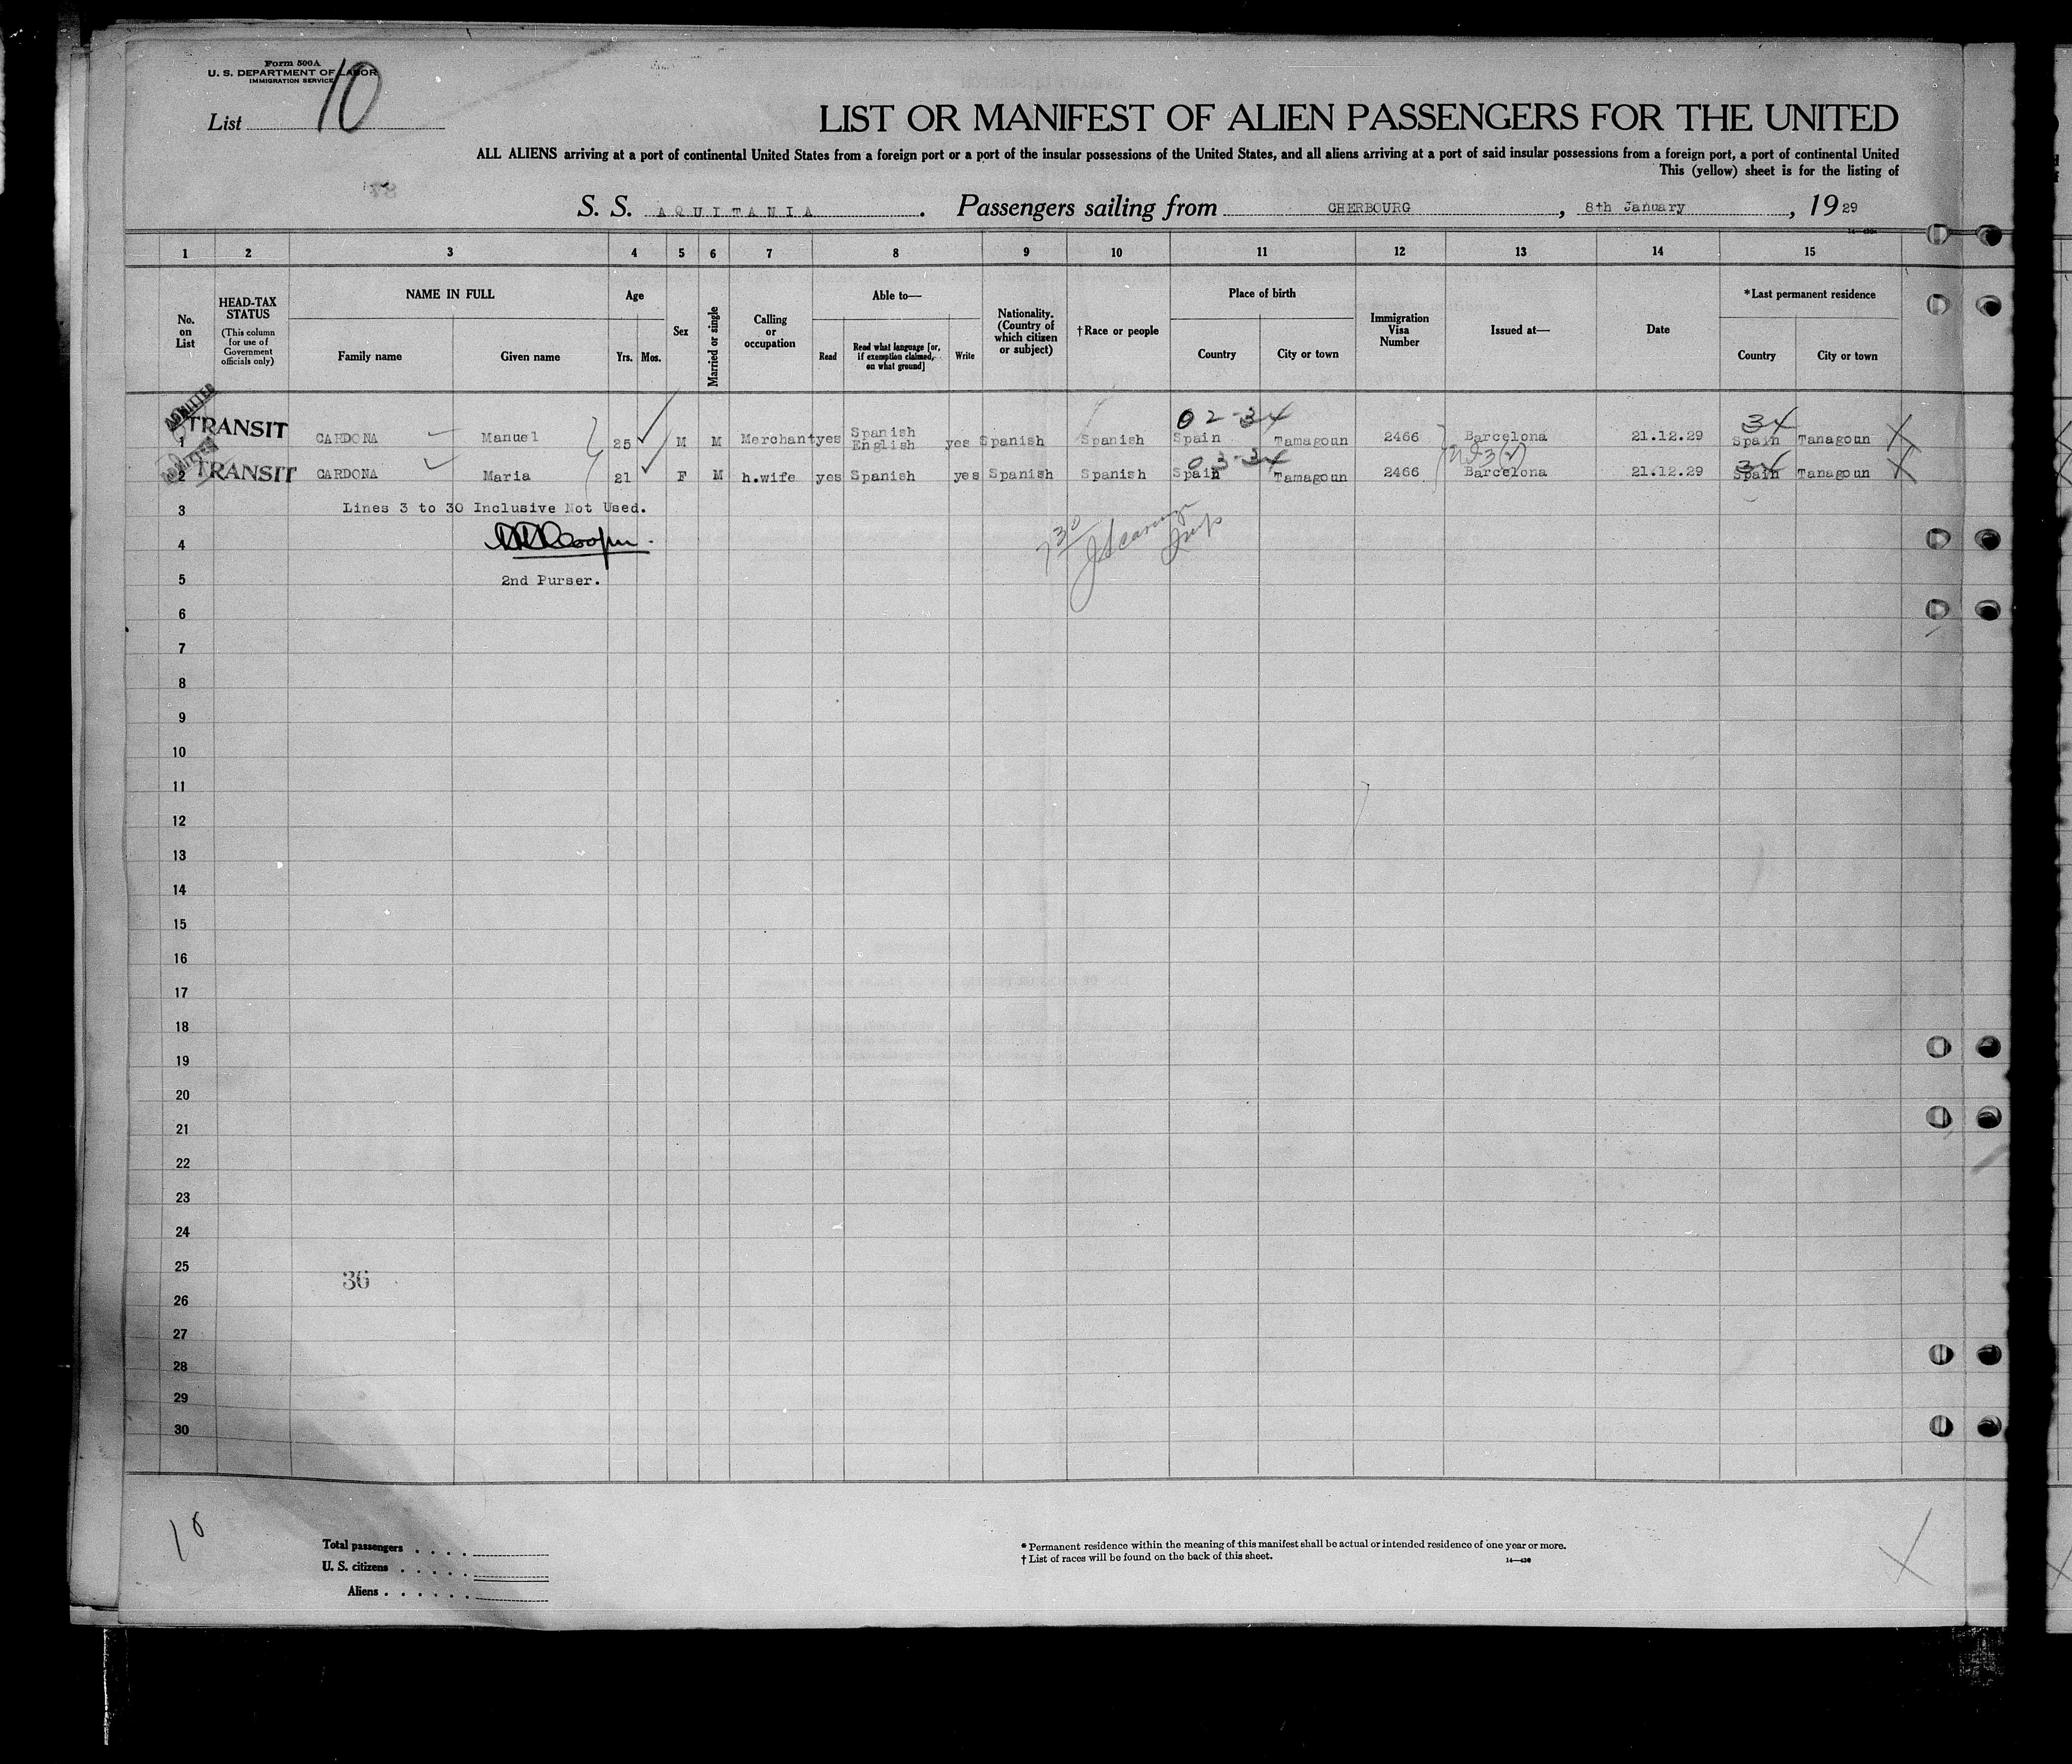 Form 500A
U. S. DEPARTMENT OF LABOR
IMMIGRATION SERVICE
List 10
LIST OR MANIFEST OF ALIEN PASSENGERS FOR THE UNITED
ALL ALIENS arriving at a port of continental United States from a foreign port or a port of the insular possessions of the United States, and all aliens arriving at a port of said insular possessions from a foreign port, a port of continental United
This (yellow) sheet is for the listing of
S. S. AQUITANIA. Passengers sailing from CHERBOURG, 8th January, 1929
1 2 3 4 5 6 7 8 9 10 11 12 13 14 15
No. on List
HEAD-TAX STATUS (This column for use of Government officials only)
NAME IN FULL
Family name Given name
Age
Yrs. Mos.
Sex
Married or single
Calling or occupation
Able to—
Read
Read what language [or, if exemption claimed, on what ground]
Write
Nationality. (Country of which citizen or subject)
†Race or people
Place of birth
Country City or town
Immigration Visa Number
Issued at—
Date
*Last permanent residence
Country City or town
ADMITTED
02-34 34
1 TRANSIT CARDONA Manuel 25 M M Merchant yes Spanish English yes Spanish Spanish Spain Tamagoun 2466 Barcelona 21.12.29 Spain Tanagoun
ADMITTED
03-34 34
2 TRANSIT CARDONA Maria 21 F M h.wife yes Spanish yes Spanish Spanish Spain Tamagoun 2466 Barcelona 21.12.29 Spain Tanagoun
3 Lines 3 to 30 Inclusive Not Used.
4
5 2nd Purser.
6
7
8
9
10
11
12
13
14
15
16
17
18
19
20
21
22
23
24
25
36
26
27
28
29
30
10
Total passengers
U. S. citizens
Aliens
* Permanent residence within the meaning of this manifest shall be actual or intended residence of one year or more.
† List of races will be found on the back of this sheet.
14—430